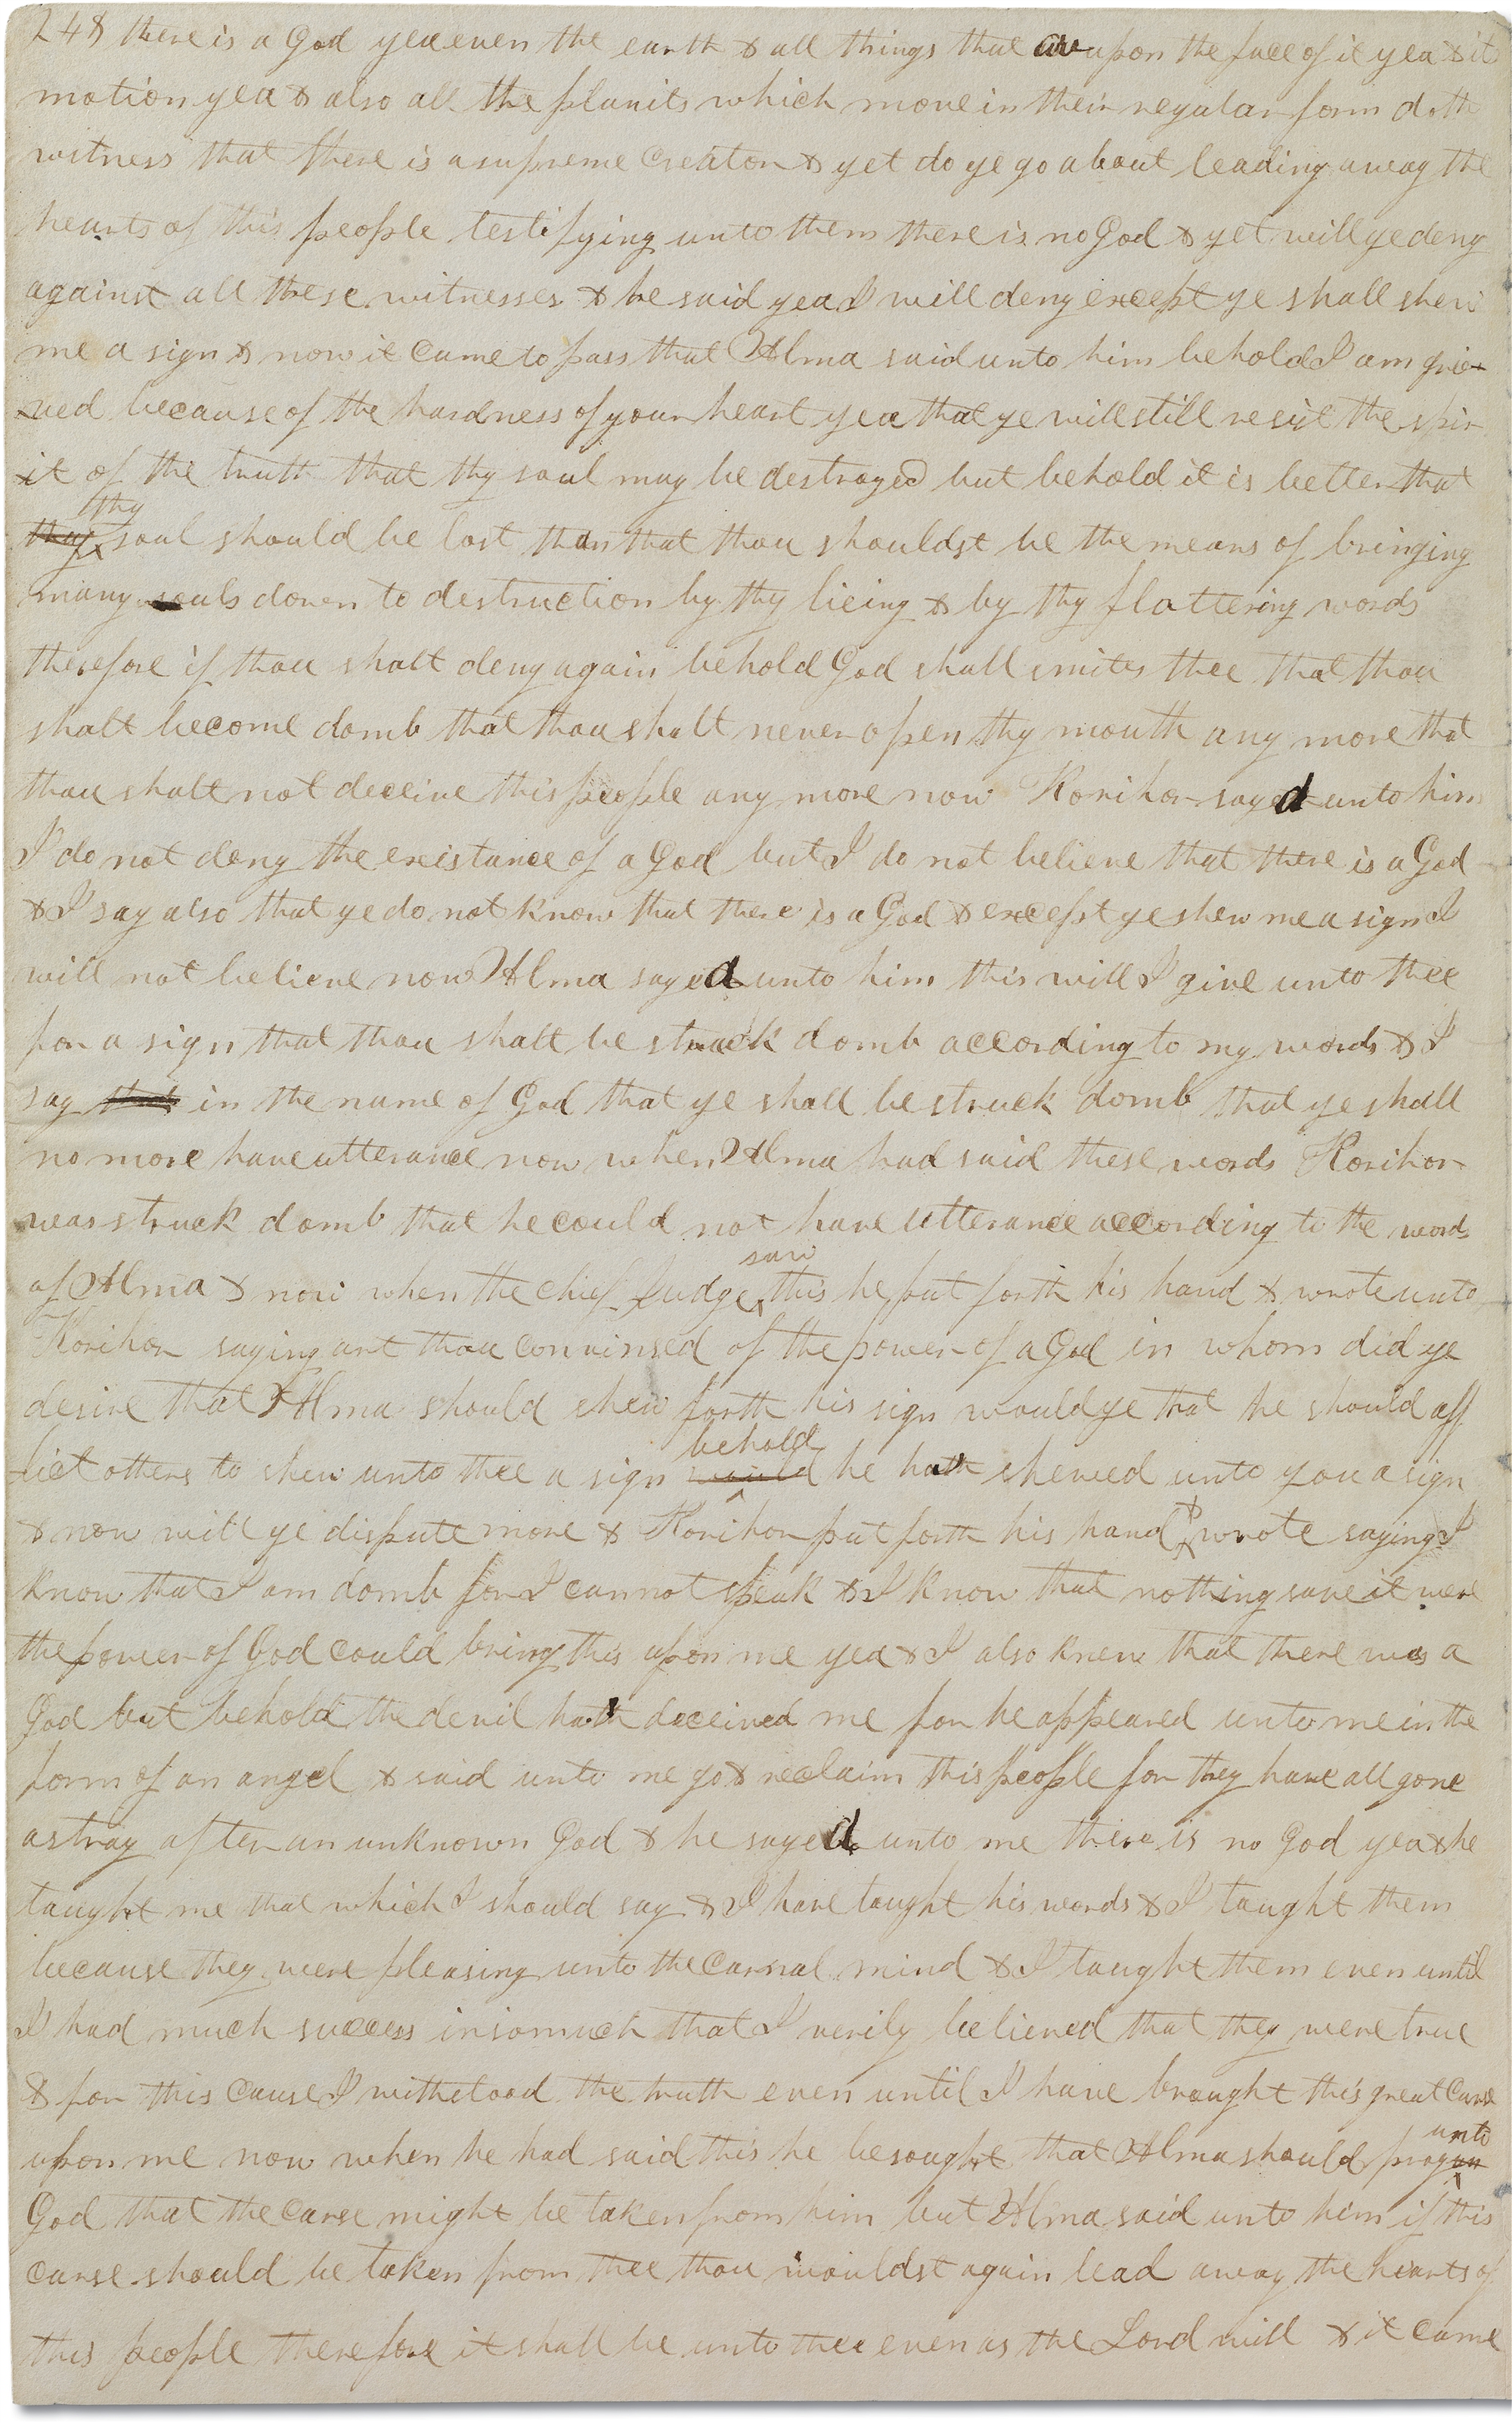 248 there is a God yea even the earth & all things that are upon the face of it yea & it
motion yea & also all the planits which move in their regular form doth
witness that there is a supreme Creator & yet do ye go about leading away the
hearts of this people testifying unto them there is no God & yet will ye deny
against all these witnesses & he said yea I will deny except ye shall shew
me a sign & now it came to pass that Alma said unto him behold I am grie-
-ved because of the hardness of your heart yea that ye will still resist the spir
-it of the truth that thy soul may be destroyed but behold it is better that
thy
thy soul should be lost than that thou shouldst be the means of bringing
many souls down to destruction by thy lieing & by thy flattering words
therefore if thou shalt deny again behold God shall smite thee that thou
shalt become domb that thou shalt never open thy mouth any more that
thou shalt not deceive this people any more now Korihor sayed unto him
I do not deny the existance of a God but I do not believe that there is a God
& I say also that ye do not know that there is a God & except ye shew me a sign I
will not believe now Alma sayed unto him this will I give unto thee
for a sign that thou shalt be struck domb according to my words & I
say that in the name of God that ye shall be struck domb that ye shall
no more have utterance now when Alma had said these words Korihor
was struck domb that he could not have utterance according to the words
saw
of Alma & now when the chief Judge this he put forth his hand & wrote unto
Korihor saying art thou convinsed of the power of a God in whom did ye
desire that Alma should shew forth his sign would ye that he should aff
behold
-lict others to shew unto thee a sign would he hath shewed unto you a sign
& now will ye dispute more & Korihor put forth his hand & wrote saying I
know that I am domb for I cannot speak & I know that nothing save it were
the power of God could bring this upon me yea & I also knew that there was a
God but behold the devil hath deceived me for he appeared unto me in the
form of an angel & said unto me go & reclaim this people for they have all gone
astray after an unknown God & he sayed unto me there is no God yea & he
taught me that which I should say & I have taught his words & I taught them
because they were pleasing unto the carnal mind & I taught them even until
I had much success insomuch that I verily believed that they were true
& for this cause I withstood the truth even until I have brought this great curse
unto
upon me now when he had said this he besought that Alma should pray
God that the curse might be taken from him but Alma said unto him if this
curse should be taken from thee thou wouldst again lead away the hearts of
this people therefore it shall be unto thee even as the Lord will & it came